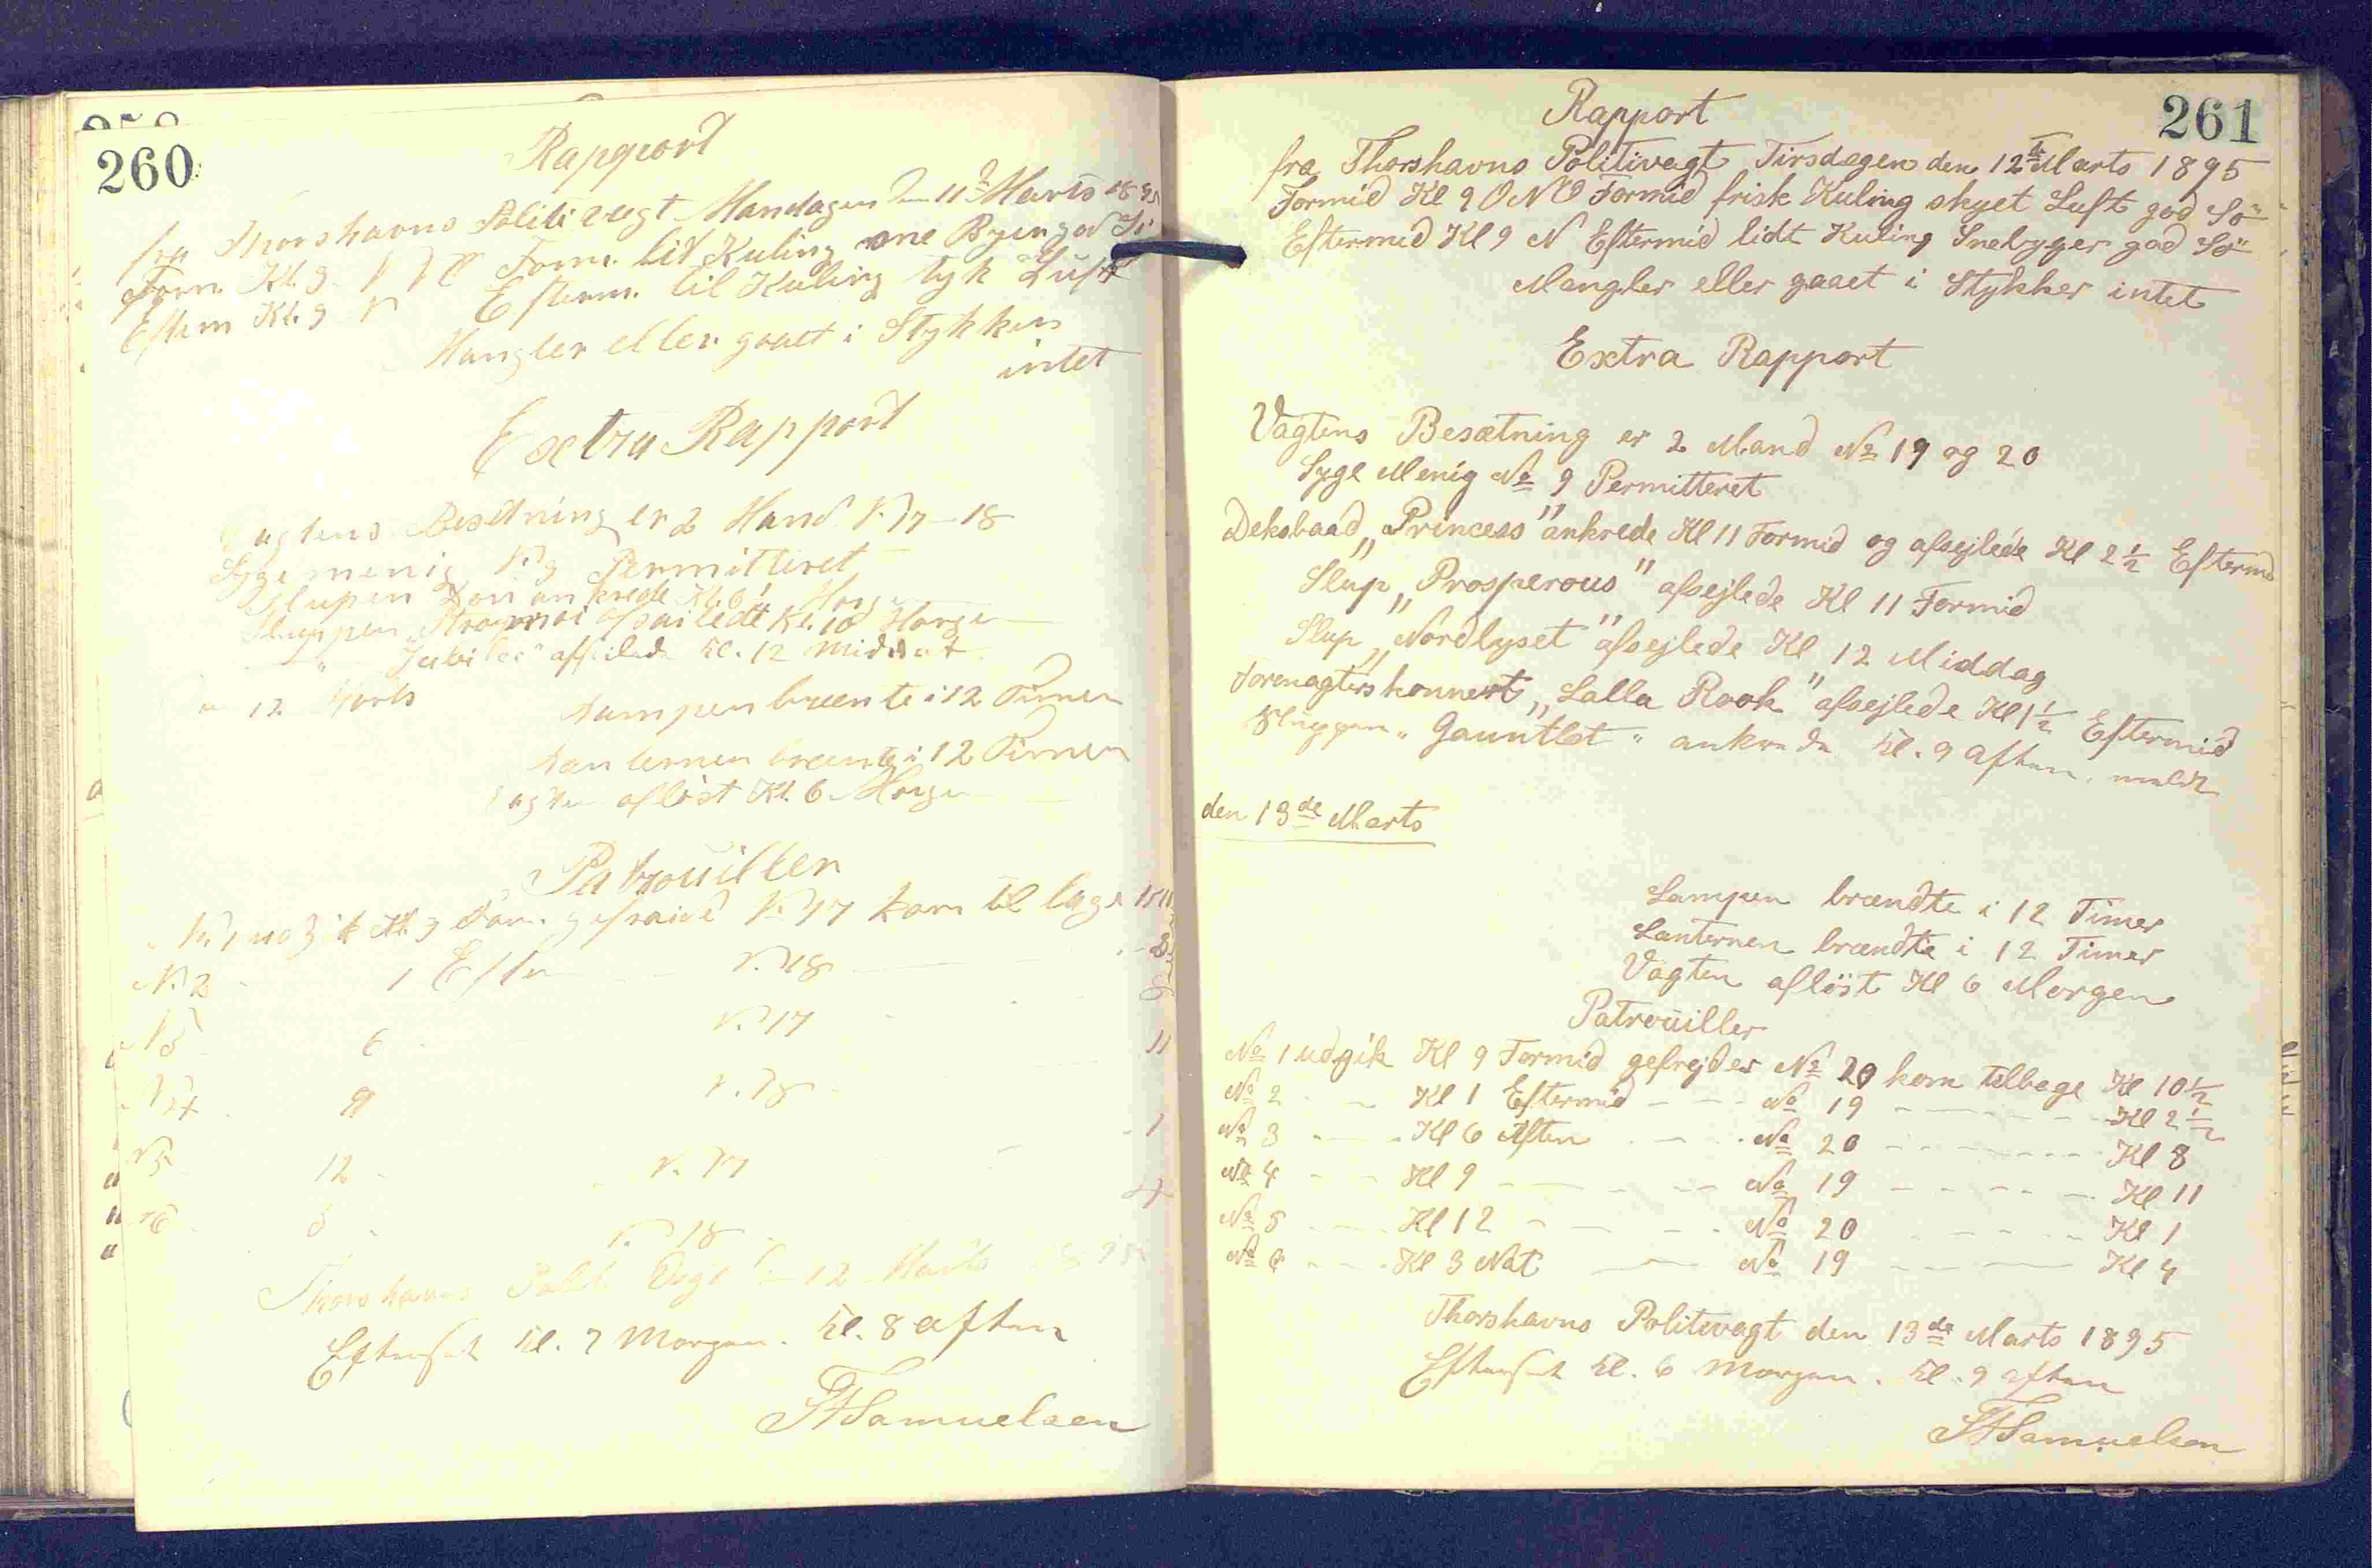 260
Rapport
fra Thorshavns Politivagt Mandagen den 11 Marts 1895
Form Kl. 9 Form. lit Kuling
Eftem Kl. 9 N Efterm. lit Kuling tyk Luft
Mangler eller gaaet i Stykker
intet
Extra Rapport
Vagtens Besetning er 2 Mand N. 17-18
Syge menig N. 9 Permitteret
Slupen ankrede Kl. 6 Morgen
Sluppen afsailede Kl. 10 Morgen
" afseilede Kl. 12 Middnat
12 Marts
Lampen brænte i 12 Timer
Lanternen brænte i 12 Timer
Vagten aflöst Kl. 6 Morgen
Patrouiller
N. 1 udgik Kl. 9 Form. N. 17 kom til bage
N. 2 1 Efter N. 18
N. 3 6 N. 17
N. 4 9 N. 18 11
N. 5 12 N. 17 1
N. 6 3 N. 18 4
Thorshavns Politi Vagt 12 Marts 1895
Efterset Kl. 7 Morgen. Kl. 8 aften
Samuelsen
261
Rapport
fra Thorshavns Politivagt Tirsdagen den 12te Marts 1895
Formid Kl 9 ONO Formid frisk Kuling skyet Luft god Sö
Eftermid Kl 9 N Eftermid lidt Kuling Snebyger god Sö
Mangler eller gaaet i Stykker intet
Extra Rapport
Vagtens Besætning er 2 Mand No 19 og 20
Syge Menig No 9 Permitteret
Deksbaad „Princess" ankrede Kl 11 Formid og afsejlede Kl 2½ Eftermid
Slup „Prosperous" afsejlede Kl 11 Formid
Slup „Nordlyset" afsejlede Kl 12 Middag
Forenagterskonnert „Lalla Rook" afsejlede Kl 1½ Eftermid
Sluppen „Gauntlet" ankrede Kl. 9 aften.
den 13de Marts
Lampen brændte i 12 Timer
Lanternen brændte i 12 Timer
Vagten aflöst Kl 6 Morgen
Patrouiller
No 1 udgik Kl 9 Formid gefrejder No 20 kom tilbage Kl 10½
No 2 Kl 1 Eftermid No 19 Kl 2½
No 3 Kl 6 Aften No 20 Kl 8
No 4 Kl 9 No 19 Kl 11
No 5 Kl 12 No 20 Kl 1
No 6 Kl 3 Nat No 19 Kl 4
Thorshavns Politivagt den 13de Marts 1895
Efterset Kl. 6 Morgen. Kl. 9 aften
Samuelsen